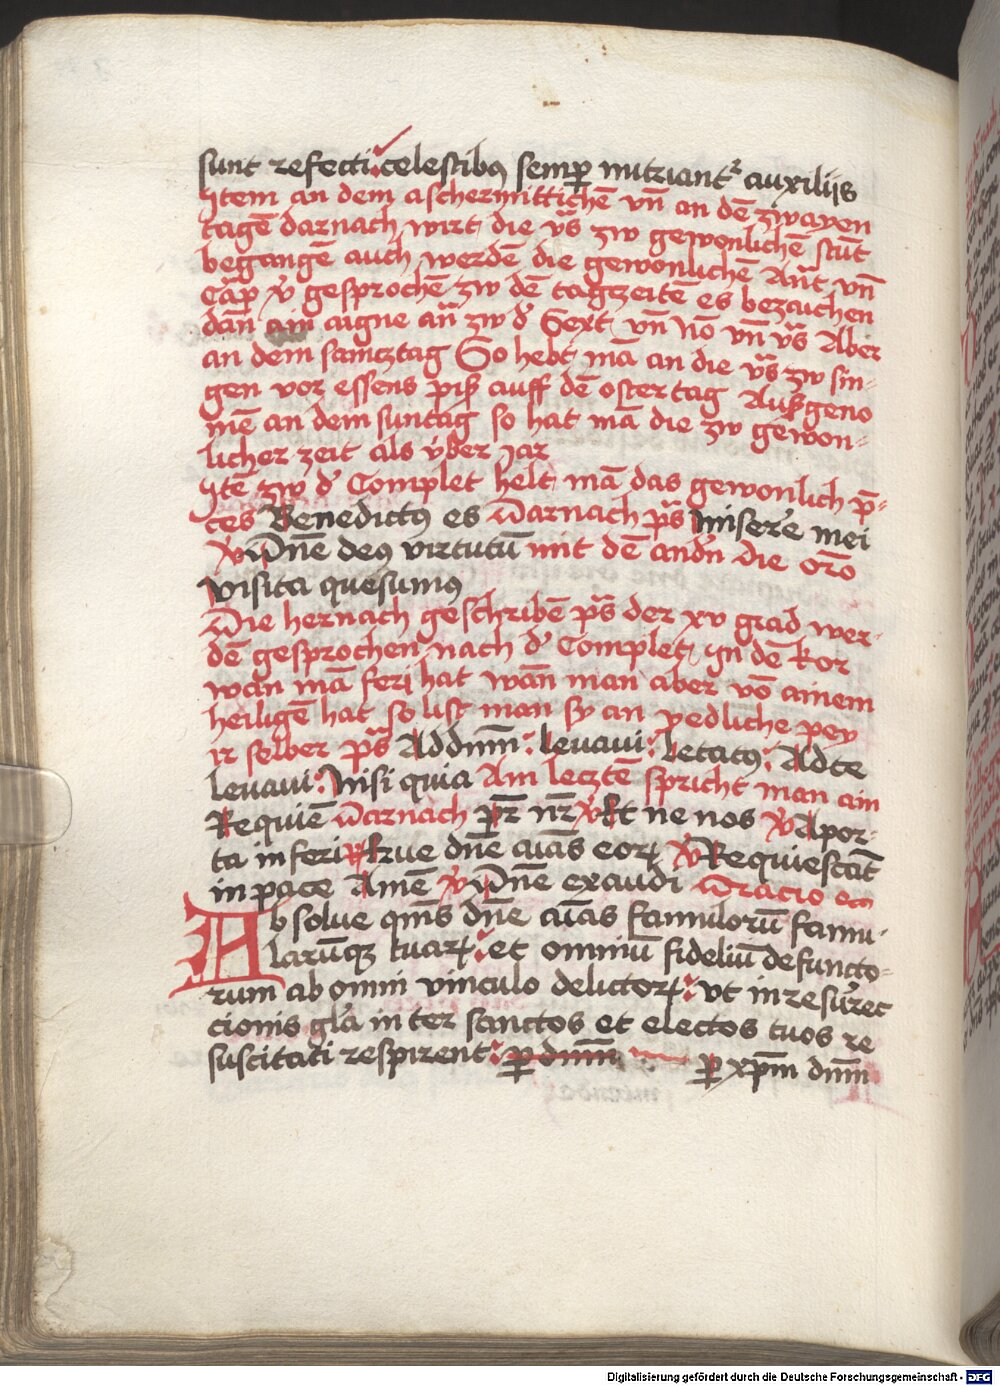 sunt refecti: celestibꝰ semꝑ nutriantᷣ auxilijs
Item an dem aschermittichē vn̄ an dē zwayen
tagē darnach wirt die vs̄ zw gewonlichē stūt
begangē auch werdē die gewonlichē Ān̄t vn̄
Cāp ℣ gesprochē zw dē tagzeitē es bezaichen
dan̄ ain aigne an̄ zw dˀ Sext vn̄ No̅ vn̄ vs̄ Aber
an dem samcztag So hebt mā an die vs̄ zw sin-
gen vor essens piß auff dē ostertag Außgeno
mē an dem suntag so hat mā die zw gewon-
licher zeit als vber Jar
Itē zw dˀ Complet helt mā das gewonlich p̄-
ces Benedictꝰ es Darnach ps̄ Miserere mei
℣ Dn̄e deꝰ virtutū mit dē andˀn die oro̅
Visita quesumꝰ
Die hernach geschribē ps̄ der xv grad wer-
dē gesprochen nach dˀ Complet Jn dē kor
wan̄ mā ferj hat wan̄ man aber vō ainem
heiligē hat so list man sy an yedliche pey
ir selber ps̄ Ad dn̄m: Levavi: Letatꝰ: Ad te
levavi: Nisi quia Am leztē spricht man ain
Requiē Darnach pr̄ nr̄ ℣ Et ne nos ℣ A por-
ta inferi ℟ Erue dn̄e aīas eoꝝ ℣ Requiescāt
in pace Amē ℣ Dn̄e exaudi Oracio
Absolue qm̄s dn̄e aīas famulorū famu-
larūqꝫ tuaꝝ: et omniū fideliū defuncto-
rum ab omni vinculo delictoꝝ: vt in resurec
cionis gl̄a inter sanctos et electos tuos re
suscitati respirent: ꝑ dn̄m ꝑ xp̄m dn̄m
Digitalisierung gefördert durch die Deutsche Forschungsgemeinschaft - DFG